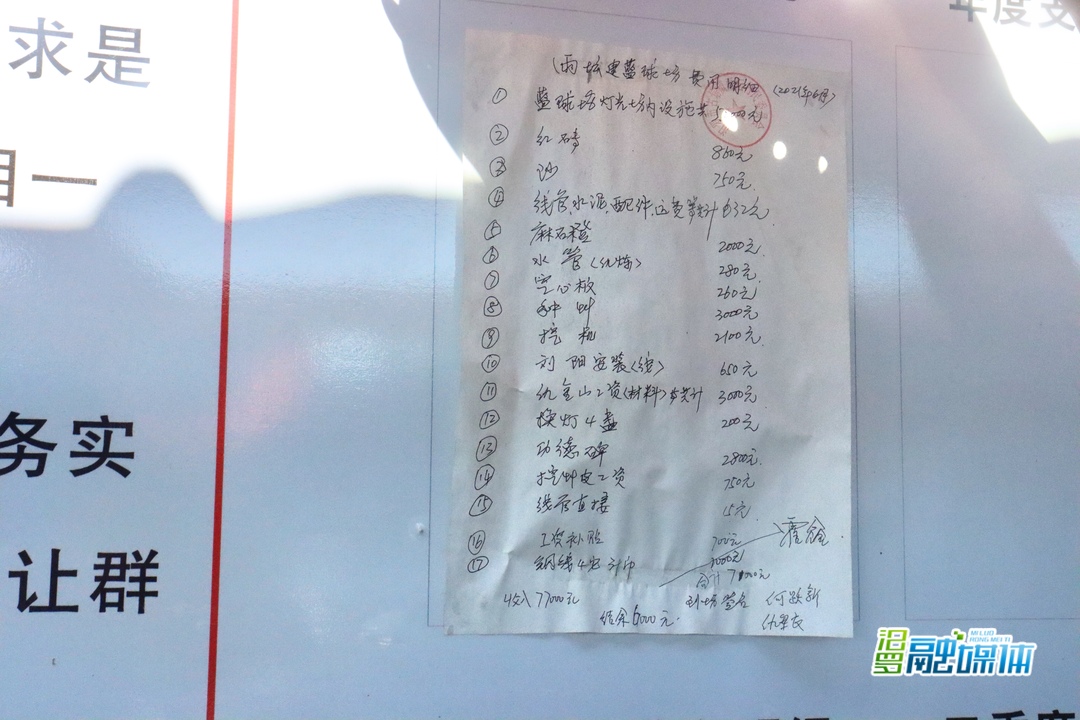 求是
年度支
目一
务实
让群
建篮球场费用明细 (2021年6月)
① 篮球场灯光场内设施共
② 红砖 860元
③ 沙 750元
④ 线管,水泥,配件,运费等共计 632元
⑤ 麻石凳 2000元
⑥ 水管 280元
⑦ 空心板 260元
⑧ 种草 3000元
⑨ 挖机 2100元
⑩ 刘阳安装 650元
⑪ 仇金山工资(材料)共计 3000元
⑫ 换灯4盏 200元
⑬ 功德碑 2800元
⑭ 挖草皮工资 750元
⑮ 线管直接 15元
⑯ 工资补贴 700元
⑰ 1000元
合计 71000元
收入77000元
现场签名
结余6000元
汨罗融媒体
MI LUO RONG MEI TI